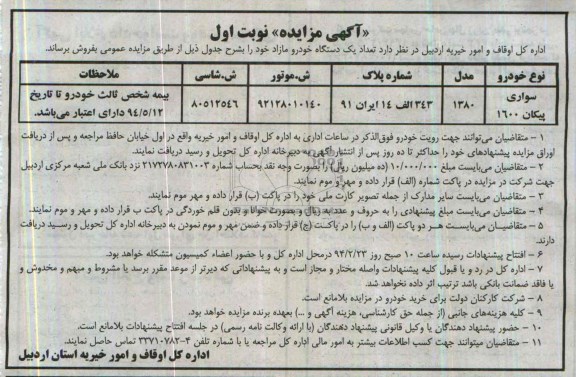 «آگهی مزایده» نوبت اول
اداره کل اوقاف و امور خیریه اردبیل در نظر دارد تعداد یک دستگاه خودرو مازاد خود را بشرح جدول ذیل از طریق مزایده عمومی بفروش برساند.
نوع خودرو مدل شماره پلاک ش.موتور ش.شاسی ملاحظات
سواری پیکان ۱۶۰۰ ۱۳۸۰ ۳۴۳ الف ۱۴ ایران ۹۱ ۹۲۱۲۸۰۱۰۱۴۰ ۸۰۵۱۲۵۴۶ بیمه شخص ثالث خودرو تا تاریخ ۹۴/۵/۱۲ دارای اعتبار می‌باشد.
۱ - متقاضیان می‌توانند جهت رویت خودرو فوق‌الذکر در ساعات اداری به اداره کل اوقاف و امور خیریه واقع در اول خیابان حافظ مراجعه و پس از دریافت
اوراق مزایده پیشنهادهای خود را حداکثر تا ده روز پس از انتشار آگهی به دبیرخانه اداره کل تحویل و رسید دریافت نمایند.
۲ - متقاضیان می‌بایست مبلغ ۱۰/۰۰۰/۰۰۰ (ده میلیون ریال) را بصورت وجه نقد بحساب شماره ۲۱۷۲۷۸۰۸۳۱۰۰۳ نزد بانک ملی شعبه مرکزی اردبیل
جهت شرکت در مزایده در پاکت شماره (الف) قرار داده و مهر و موم نمایند.
۳ - متقاضیان می‌بایست سایر مدارک از جمله تصویر کارت ملی خود را در پاکت (ب) قرار داده و مهر موم نمایند.
۴ - متقاضیان می‌بایست مبلغ پیشنهادی را به حروف و عدد به ریال و بصورت خوانا و بدون قلم خوردگی در پاکت ب قرار داده و مهر و موم نمایند.
۵ - متقاضیان می‌بایست هر دو پاکت (الف و ب) را در پاکت (ج) قرار داده و ضمن مهر و موم نمودن به دبیرخانه اداره کل تحویل و رسید دریافت
دارند.
۶ - افتتاح پیشنهادات رسیده ساعت ۱۰ صبح روز ۹۴/۲/۲۳ درمحل اداره کل و با حضور اعضاء کمیسیون متشکله خواهد بود.
۷ - اداره کل در رد و یا قبول کلیه پیشنهادات واصله مختار و مجاز است و به پیشنهاداتی که دیرتر از موعد مقرر برسد یا مشروط و مبهم و مخدوش و
یا فاقد ضمانت بانکی باشد ترتیب اثر داده نخواهد شد.
۸ - شرکت کارکنان دولت برای خرید خودرو در مزایده بلامانع است.
۹ - کلیه هزینه‌های جانبی (از جمله حق کارشناسی، هزینه آگهی و ...) بعهده برنده مزایده خواهد بود.
۱۰ - حضور پیشنهاد دهندگان یا وکیل قانونی پیشنهاد دهندگان (با ارائه وکالت نامه رسمی) در جلسه افتتاح پیشنهادات بلامانع است.
۱۱ - متقاضیان میتوانند جهت کسب اطلاعات بیشتر به امور مالی اداره کل مراجعه یا با شماره تلفن ۴-۳۳۷۱۰۷۸۲ تماس حاصل نمایند.
اداره کل اوقاف و امور خیریه استان اردبیل